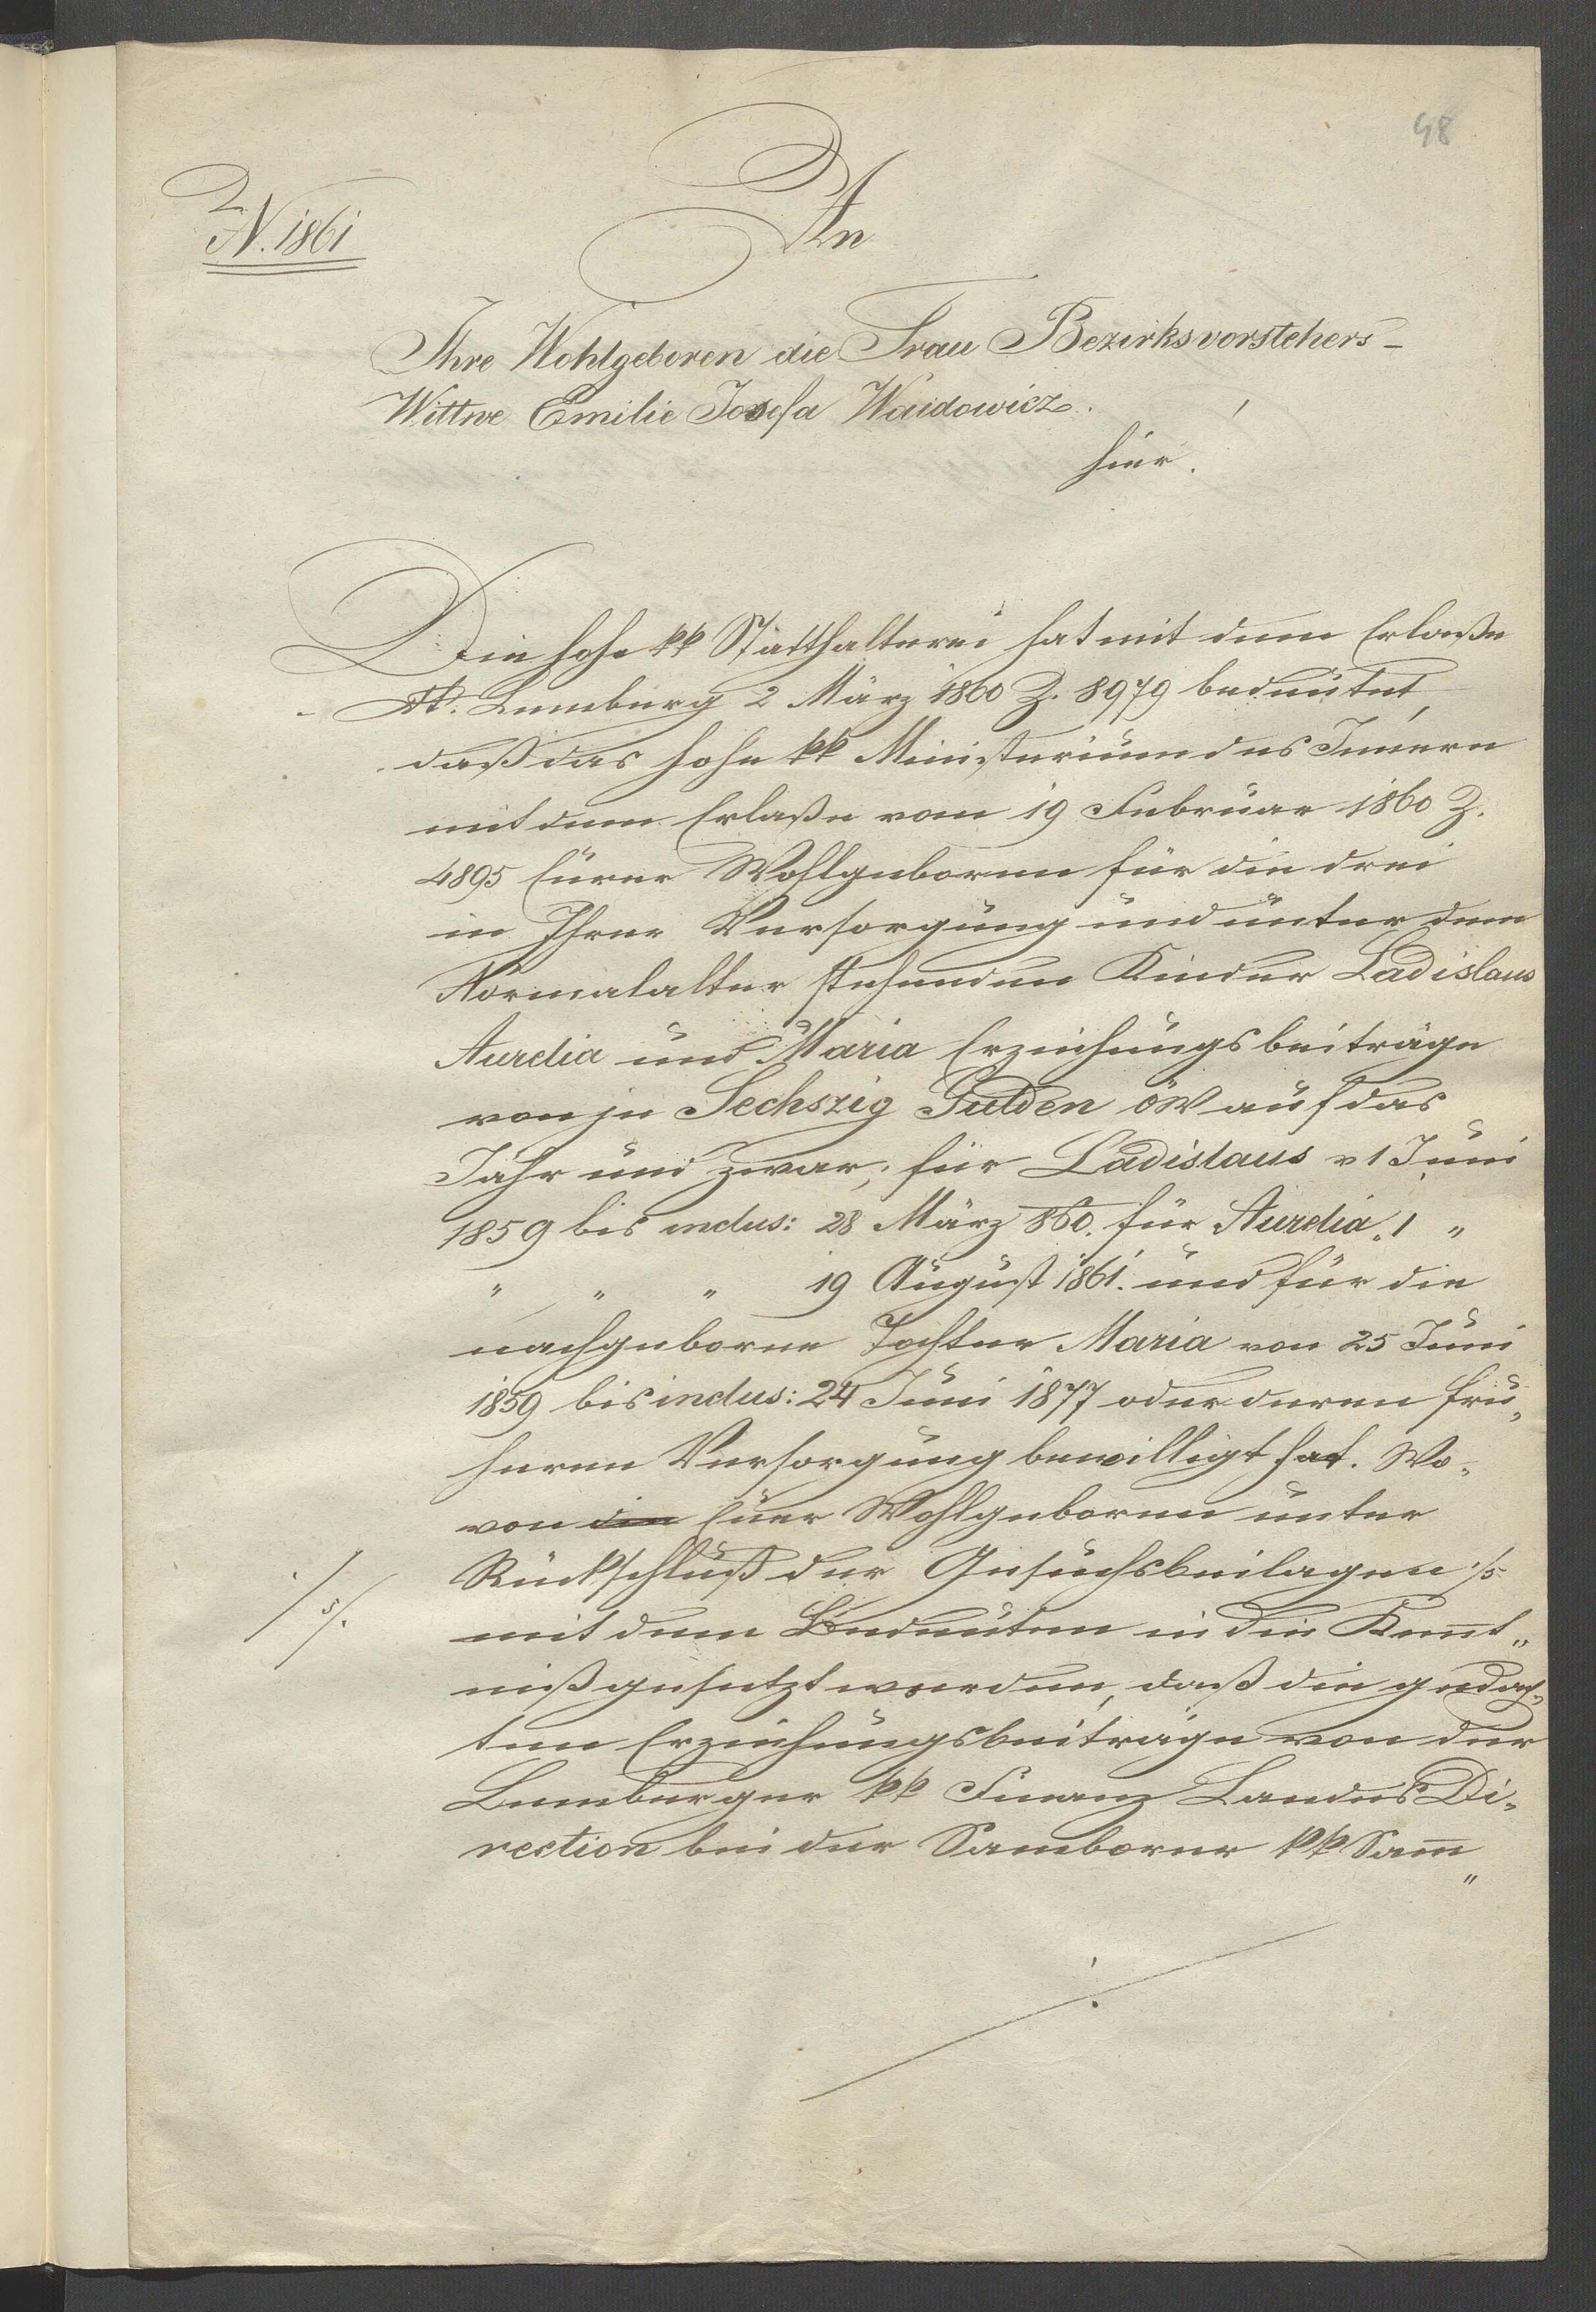 48
N. 1861
An
Ihre Wohlgeboren die Frau Bezirksvorstehers-
Wittwe Emilie Josefa Waidowicz.
hier.
Die hohe kk Statthalterei hat mit dem Erlaße
dt. Lemberg 2 März 1860 Z. 8979 bedeutet,
daß das hohe kk Ministerium des Innern
mit dem Erlaße vom 19 Februar 1860 Z.
4895 Eurer Wohlgeboren für die drei
in Ihrer Versorgung und unter dem
Normalalter stehenden Kinder Ladislaus
Aurelia und Maria Erziehungsbeiträge
von je Sechszig Gulden öW auf das
Jahr und zwar, für Ladislaus v 1 Juni
1859 bis inclus: 28 März 860. für Aurelia „ 1 „
„ „ „ 19 August 1861. und für die
nachgeborne Tochter Maria von 25 Juni
1859 bis inclus: 24 Juni 1877 oder deren frü„
heren Versorgung bewilligt hat. Wo„
von die Euer Wohlgeboren unter
Rückschluß der Gesuchsbeilagen ./5
./5/.
mit dem Bedeuten in die Kennt„
niß gesetzt werden, daß die gedach„
ten Erziehungsbeiträge von der
Lemberger kk Finanz Landes Di„
rection bei der Samborer kk Sam̅„
./.